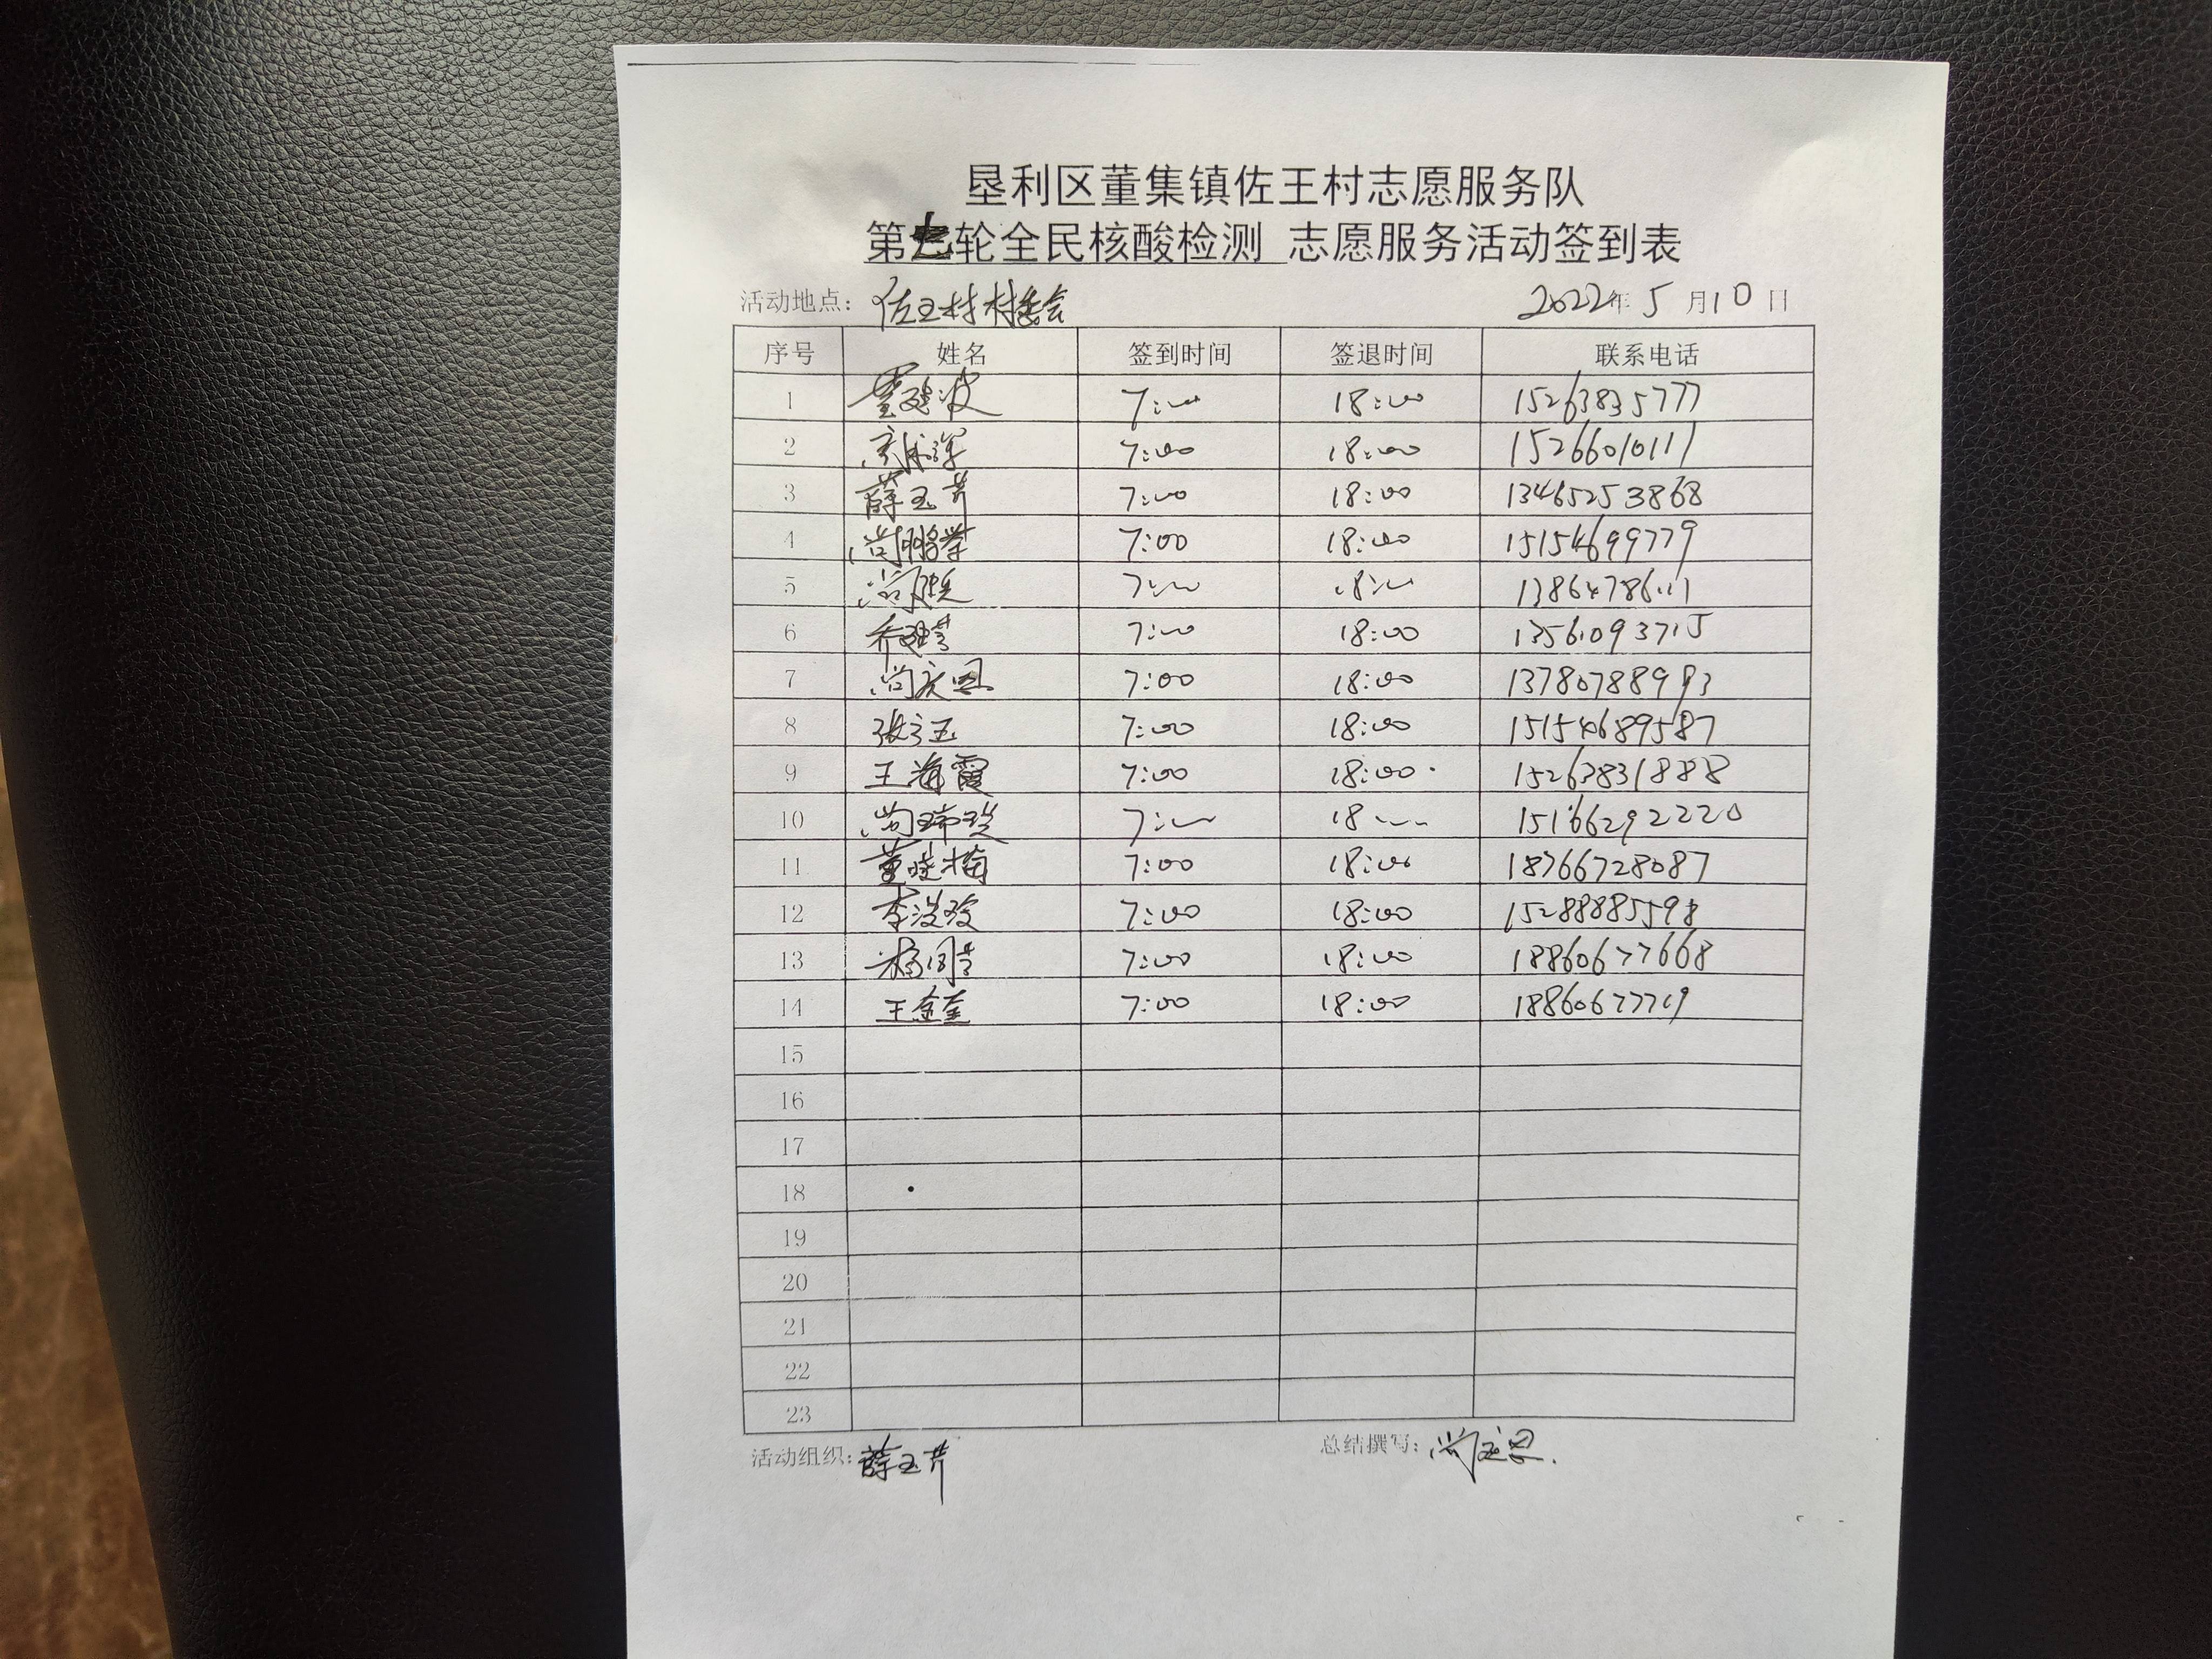 垦利区董集镇佐王村志愿服务队
第七轮全民核酸检测 志愿服务活动签到表
活动地点：佐王村村委会 2022年5月10日
序号 姓名 签到时间 签退时间 联系电话
1 7:00 18:00 15263835777
2 7:00 18:00 15266010111
3 薛玉芹 7:00 18:00 13465253868
4 尚鹏举 7:00 18:00 15154699779
5 7:00 18:00
6 7:00 18:00 13561093715
7 尚庆恩 7:00 18:00 13780788993
8 张立玉 7:00 18:00 15154689587
9 王海霞 7:00 18:00 15263831888
10 7:00 18:00 15166292220
11 董晓楠 7:00 18:00 18766728087
12 7:00 18:00 15288885598
13 7:00 18:00 18860677668
14 王金奎 7:00 18:00 18860677719
15
16
17
18
19
20
21
22
23
活动组织：薛玉芹 总结撰写：